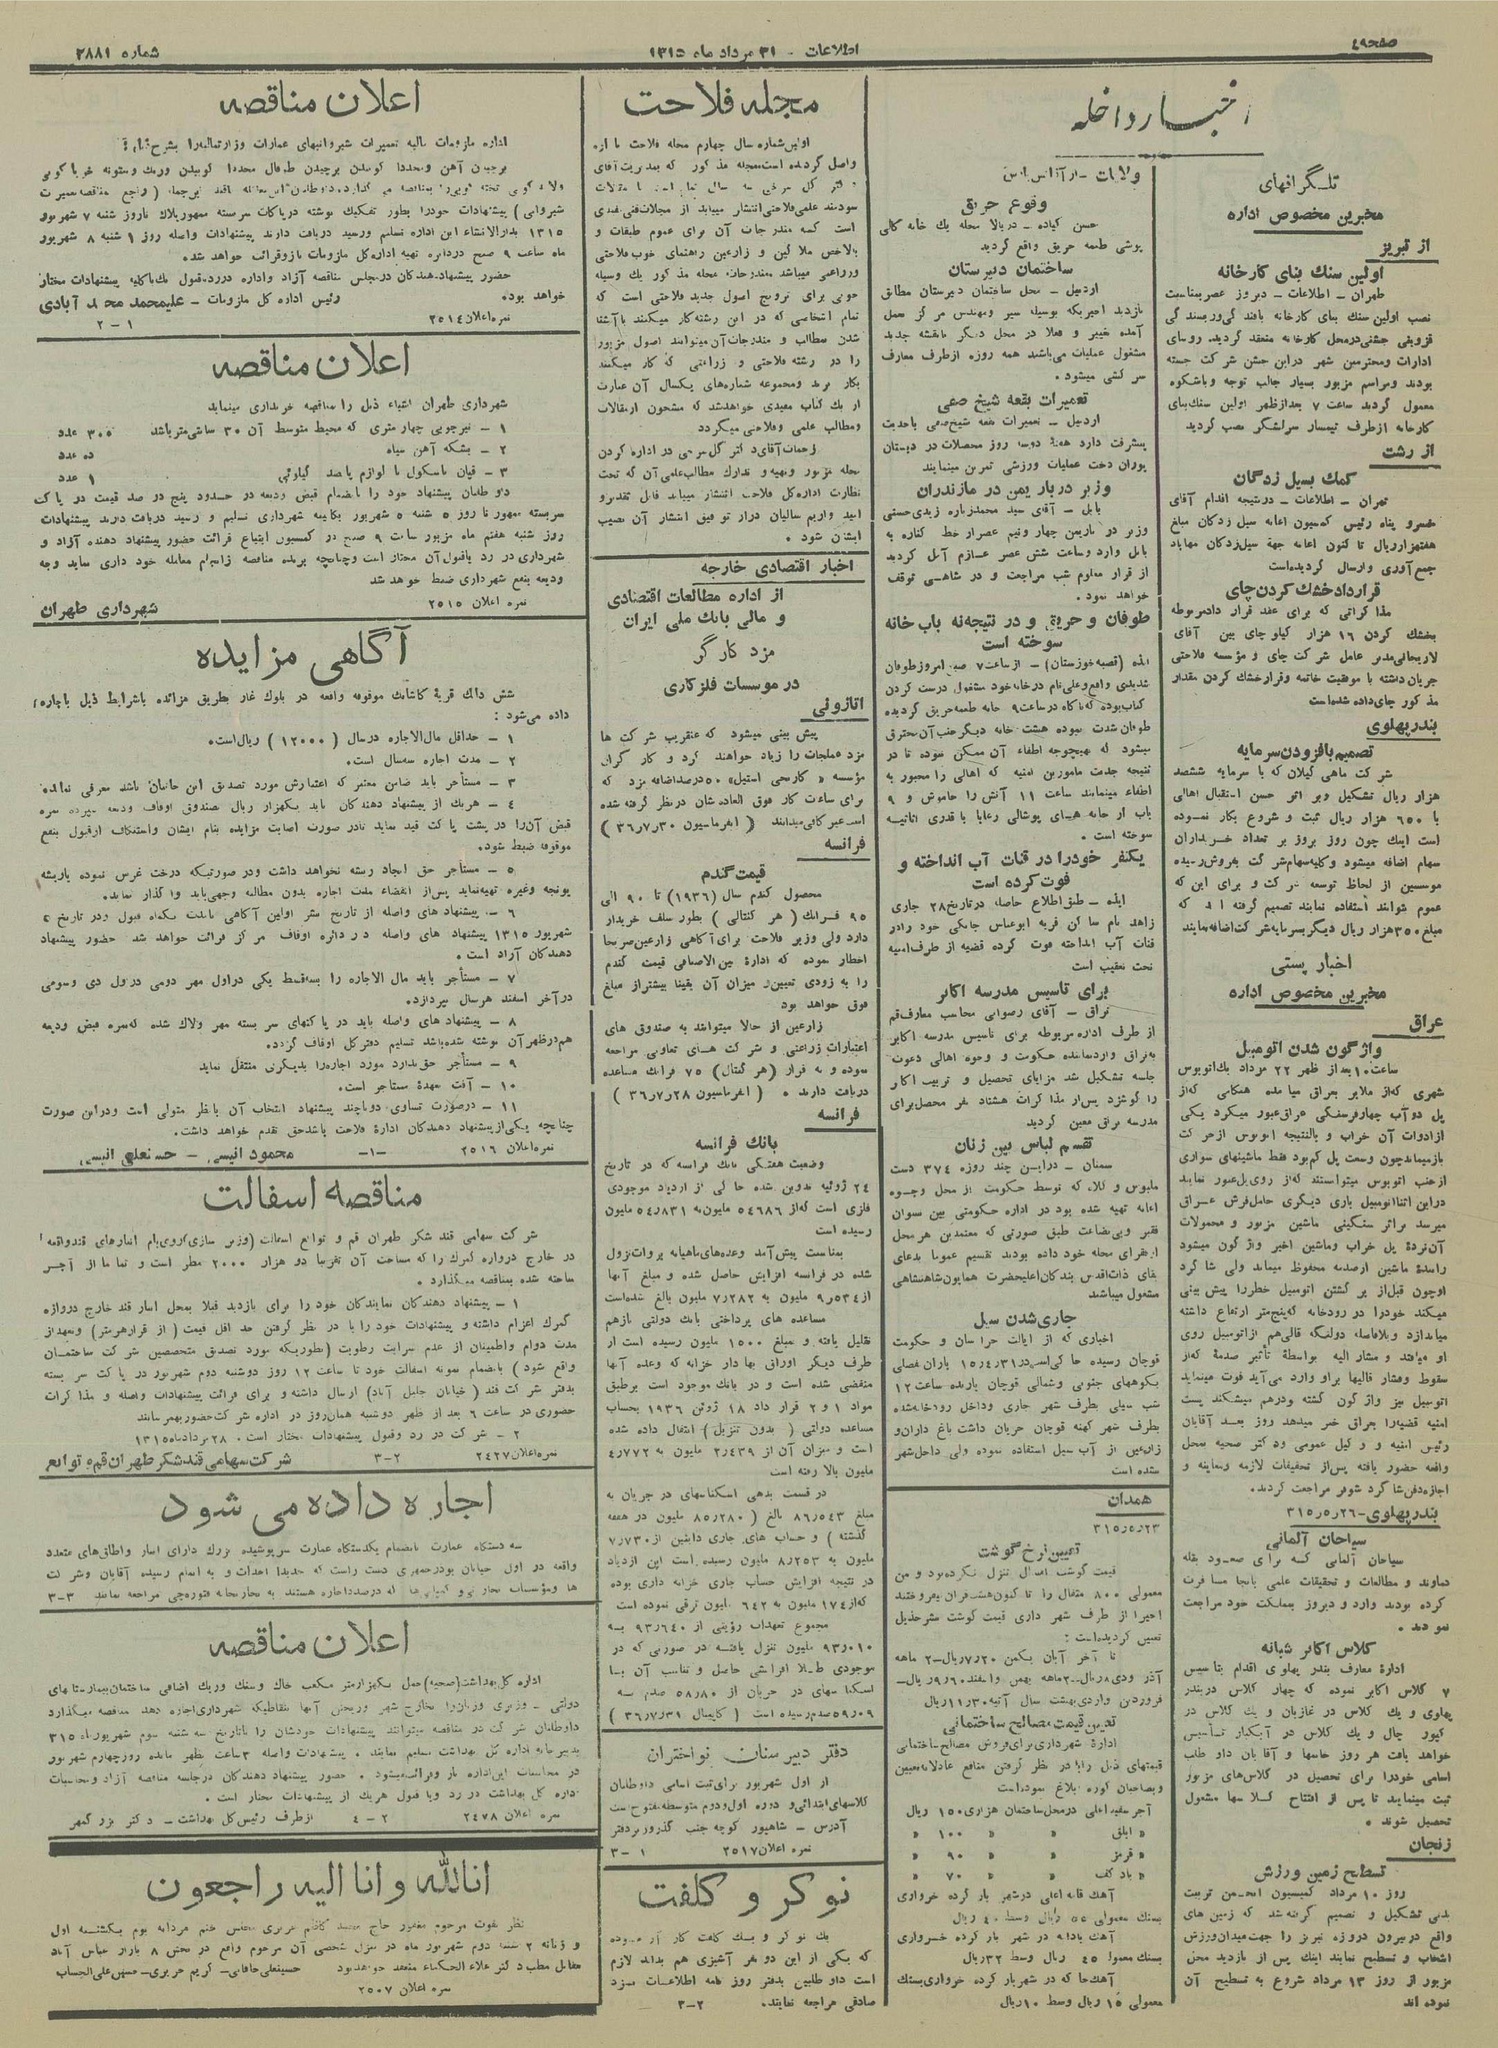 صفحه ٤
اطلاعات - ۳۱ مرداد ماه ۱۳۱۵
شماره ۲۸۸۱
اخبار داخله
تلگرافهای
مخبرین مخصوص اداره
از تبریز
اولین سنگ بنای کارخانه
طهران - اطلاعات - دیروز عصر بمناسبت
نصب اولین سنگ بنای کارخانه بافندگی وریسندگی
قزوینی جشنی درمحل کارخانه منعقد گردید. روسای
ادارات ومحترمین شهر دراین جشن شرکت جسته
بودند ومراسم مزبور بسیار جالب توجه وباشکوه
معمول گردید ساعت ۷ بعدازظهر اولین سنگ‌بنای
کارخانه ازطرف تیمسار سرلشگر نصب گردید
از رشت
کمک بسیل زدگان
تهران - اطلاعات - درنتیجه اقدام آقای
خسرو پناه رئیس کمسیون اعانه سیل زدگان مبلغ
هفتهزارریال تا کنون اعانه جهة سیل‌زدگان مهاباد
جمع‌آوری وارسال گردیده‌است
قرارداد خشک کردن چای
مذاکراتی که برای عقد قرار دادمربوطه
بخشک کردن ۱۶ هزار کیلو چای بین آقای
لاریجانی‌مدیر عامل شرکت چای و مؤسسه فلاحتی
جریان داشته با موفقیت خاتمه وقرارخشک کردن مقدار
مذکور چای‌داده شده‌است
بندرپهلوی
تصمیم بافزودن سرمایه
شرکت ماهی گیلان که با سرمایه ششصد
هزار ریال تشکیل وبر اثر حسن استقبال اهالی
با ٦٥٠ هزار ریال ثبت و شروع بکار نموده
است اینک چون روز بروز بر تعداد خریداران
سهام اضافه میشود وکلیه‌سهام‌شرکت بفروش‌رسیده
موسسین از لحاظ توسعه شرکت و برای این که
عموم بتوانند استفاده نمایند تصمیم گرفته اند که
مبلغ ۳۵۰هزار ریال دیگر بسرمایه‌شرکت‌اضافه‌نمایند
اخبار پستی
مخبرین مخصوص اداره
عراق
واژگون شدن اتومبیل
ساعت۱۰بعد از ظهر ۲۲ مرداد یک‌اتوبوس
شهری که‌از ملایر بعراق میامده هنگامی که‌از
پل دوآب چهارفرسنگی عراق‌عبور میکرد یکی
ازادوات آن خراب و بالنتیجه اتوبوس ازحرکت
بازمیماندچون وسعت پل کم‌بود فقط ماشینهای سواری
ازجنب اتوبوس میتوانستند که‌از روی‌پل‌عبور نمایند
دراین اثنااتومبیل باری دیگری حامل‌فرش عراق
میرسد براثر سنگینی ماشین مزبور و محمولات
آن‌نردهٔ پل خراب وماشین اخیر واژگون میشود
رانندهٔ ماشین ازصدمه محفوظ میماند ولی شاگرد
اوچون قبل‌از برگشتن اتومبیل خطررا پیش بینی
میکند خودرا در رودخانه که‌پنج‌متر ارتفاع داشته
میاندازد وبلافاصله دولنگه قالی‌هم ازاتومبیل روی
او میافتد و مشار الیه بواسطهٔ تأثیر صدمهٔ که‌از
سقوط وفشار قالیها براو وارد می‌آید فوت مینماید
اتومبیل نیز واژگون گشته ودرهم میشکند پست
امنیه قضیه‌را بعراق خبر میدهد روز بعد آقایان
رئیس امنیه و وکیل عمومی ودکتر صحیه بمحل
واقعه حضور یافته پس‌از تحقیقات لازمه ومعاینه و
اجازه‌دفن‌شاگرد شوفر مراجعت کردند.
بندرپهلوی-۳۱۵ر۵ر۲۶
سیاحان آلمانی
سیاحان آلمانی که برای صعود بقله
دماوند و مطالعات و تحقیقات علمی باینجا مسافرت
کرده بودند وارد و دیروز بمملکت خود مراجعت
نمودند.
کلاس اکابر شبانه
ادارهٔ معارف بندر پهلوی اقدام بتاسیس
۷ کلاس اکابر نموده که چهار کلاس دربندر
پهلوی و یک کلاس در غازیان و یک کلاس در
کپور چال و یک کلاس در آبکنار تأسیس
خواهد یافت هر روز خانمها و آقایان داوطلب
اسامی خودرا برای تحصیل در کلاس‌های مزبور
ثبت مینمایند تا پس از افتتاح کلاسها مشغول
تحصیل شوند.
زنجان
تسطیح زمین ورزش
روز ۱۰ مرداد کمسیون انجمن تربیت
بدنی تشکیل و تصمیم گرفته‌شد که زمین‌های
واقع دربیرون دروازه تبریز را جهت‌میدان‌ورزش
انتخاب و تسطیح نمایند اینک پس از بازدید محل
مزبور از روز ۱۳ مرداد شروع به تسطیح آن
نموده‌اند
وقوع حریق
حسن کیاده - دربالا محله یک خانه گالی
پوشی طعمه حریق واقع گردید
ساختمان دبیرستان
اردبیل - محل ساختمان دبیرستان مطابق
بازدید اخیریکه بوسیله سیر ومهندس مرکز بعمل
آمده تغییر و فعلا در محل دیگر بانقشه جدید
مشغول عملیات می‌باشند همه روزه ازطرف معارف
سرکشی میشود.
تعمیرات بقعه شیخ صفی
اردبیل - تعمیرات بقعه شیخ‌صفی باجدیت
پیشرفت دارد هفتهٔ دوسه روز محصلات در دبستان
پوران دخت عملیات ورزشی تمرین مینمایند
وزیر دربار یمن در مازندران
بابل - آقای سید محمدزباره زیدی‌حسنی
وزیر دربار یمن چهار ونیم عصر از خط کناره به
بابل وارد وساعت شش عصر عازم آمل گردید
از قرار معلوم شب مراجعت و در شاهی توقف
خواهد نمود.
طوفان و حریق و در نتیجه‌نه باب خانه
سوخته است
ایذه (قصبه خوزستان) - از ساعت ۷ صبح امروز طوفان
شدیدی واقع وعلی نام درخانه‌خود مشغول درست کردن
کباب‌بوده که‌ناگاه درساعت۹ خانه طعمه‌حریق گردیده
طوفان شدت نموده هشت خانه دیگر جنب‌آن‌محترق
میشود که بهیچوجه اطفاء آن ممکن نبوده تا در
نتیجه جدیت مامورین امنیه که اهالی را مجبور به
اطفاء مینمایند ساعت ۱۱ آتش را خاموش و ۹
باب از خانه های پوشالی رعایا با قدری اثاثیه
سوخته است.
یکنفر خودرا در قنات آب انداخته و
فوت کرده است
ایذه - طبق اطلاع حاصله درتاریخ۲۸ جاری
زاهد نام ساکن قریه ابوعباس جانکی خود رادر
قنات آب انداخته فوت کرده قضیه از طرف‌امنیه
تحت تعقیب است
برای تاسیس مدرسه اکابر
نراق - آقای رضوانی محاسب معارف‌قم
از طرف اداره مربوطه برای تاسیس مدرسه اکابر
به‌نراق واردنماینده حکومت و وجوه اهالی دعوت
جلسه تشکیل شد مزایای تحصیل و تربیت اکابر
را گوشزد پس‌از مذاکرات هشتاد نفر محصل‌برای
مدرسه نراق معین گردید
تقسیم لباس بین زنان
سمنان - دراین چند روزه ۳۷٤ دست
ملبوس و کلاه که توسط حکومت از محل وجوه
اعانه تهیه شده بود در اداره حکومتی بین نسوان
فقیر وبی‌بضاعت طبق صورتی که معتمدین هر محل
ازفقرای محله خود داده بودند تقسیم عموما بدعای
بقای ذات‌اقدس بندگان‌اعلیحضرت همایون‌شاهنشاهی
مشغول میباشند
جاری‌شدن سیل
اخباری که از ایالت خراسان و حکومت
قوچان رسیده حاکی‌است‌در ۳۱ر٤ر۱۵ باران‌فصلی
بکوههای جنوبی وشمالی قوچان باریده ساعت۱۲
شب سیلی بطرف شهر جاری وداخل رودخانه‌شده
بطرف شهر کهنه قوچان جریان داشت باغ داران‌و
زارعین از آب سیل استفاده نموده ولی داخل‌شهر
نشده است
همدان
۲۳ر۵ر۳۱۵
تعیین‌نرخ گوشت
قیمت گوشت امسال تنزل نکرده‌بود و من
معمولی ۸۰۰ مثقال را تاکنون‌هشت‌قران‌میفروختند
اخیرا از طرف شهر داری قیمت گوشت بشرحذیل
تعیین گردیده‌است:
تعیین قیمت مصالح ساختمانی
ادارهٔ شهرداری‌برای‌فروش مصالح‌ساختمانی
قیمتهای ذیل رابا در نظر گرفتن منافع عادلانه‌معین
وبصاحبان کوره ابلاغ نموده‌است
آجرسفیداعلی درمحل‌ساختمان هزاری۱۵۰ ریال
» ابلق » » ۱۰۰ »
» قرمز » » ۹۰ »
» باد کف » » ۷۰ »
مجله فلاحت
اولین‌شماره سال چهارم مجله فلاحت بااداره
واصل گردیده است‌مجله مذکور که بمدیریت‌آقای
سودمند علمی‌فلاحتی‌انتشار مییابد از مجلات‌فنی‌مفیدی
است که مندرجات آن برای عموم طبقات و
بالاخص ملاکین و زارعین راهنمای خوب‌فلاحتی
وزراعتی میباشد مندرجات مجله مذکور یک وسیله
خوبی برای ترویج اصول جدید فلاحتی است که
تمام اشخاصی که در این رشته‌کار میکنند باآشنا
شدن بمطالب و مندرجات‌آن‌میتوانند اصول مزبور
را در رشته فلاحتی و زراعتی که کار میکنند
بکار برند ومجموعه شماره‌های یکسال آن عبارت
از یک کتاب مفیدی خواهدشد که مشحون ازمقالات
ومطالب علمی وفلاحتی میگردد
مجله مزبور وتهیه و تدارک مطالب‌علمی آن‌که تحت
نظارت اداره‌کل فلاحت انتشار مییابد قابل تقدیرو
امید واریم سالیان دراز توفیق انتشار آن نصیب
ایشان شود.
اخبار اقتصادی خارجه
از اداره مطالعات اقتصادی
و مالی بانک ملی ایران
مزد کارگر
در موسسات فلزکاری
اتازونی
پیش بینی میشود که عنقریب شرکت ها
مزد عملجات را زیاد خواهند کرد و کارگران
مؤسسه » کارنجی استیل» ۵۰درصداضافه مزد که
برای ساعت کار فوق العاده‌شان درنظر گرفته شده
است‌غیر کافی‌میدانند (انفرماسیون ۳۰ر۷ر۳۶)
فرانسه
قیمت گندم
محصول گندم سال (۱۹۳۶) تا ۹۰ الی
۹۵ فرانک (هر کنتالی) بطور سلف خریدار
دارد ولی وزیر فلاحت برای‌آگاهی زارعین‌صریحا
اخطار نموده که ادارهٔ بین‌الاصنافی قیمت گندم
را به زودی تعیین‌ر میزان آن یقینا بیشتراز مبلغ
فوق خواهد بود
زارعین از حالا میتوانند به صندوق های
اعتبارات زراعتی و شرکت های تعاونی مراجعه
نموده و به قرار (هر کنتال) ۷۵ فرانک مساعده
دریافت دارند. (انفرماسیون ۲۸ر۷ر۳۶)
فرانسه
بانک فرانسه
وضعیت هفتگی بانک فرانسه که در تاریخ
۲٤ ژوئیه تدوین شده حاکی از ازدیاد موجودی
فلزی است که‌از ۵٤۶۸۶ ملیون‌به ۵٤ر۸۳۱ ملیون
رسیده است
بمناسبت پیش‌آمد وعده‌های‌ماهیانه بروات‌نزول
شده در فرانسه افزایش حاصل شده و مبلغ آنها
مساعده های پرداختی بانک دولتی بازهم
تقلیل یافته و بمبلغ ۱۵۰۰ ملیون رسیده است از
طرف دیگر اوراق بهادار خزانه که وعده آنها
منقضی شده است و در بانک موجود است برطبق
مواد ۱و۲ قرار داد ۱۸ ژوئن ۱۹۳۶ بحساب
مساعده دولتی (بدون تنزیل) انتقال داده شده
است و میزان آن از ۲ر٤۳۹ ملیون به ٤ر۷۷۲
ملیون بالا رفته است
در قسمت بدهی اسکناسهای در جریان به
مبلغ ۸۶ر۵٤۳ بالغ (۸۵ر۲۸۰ ملیون در هفته
گذشته) و حساب های جاری داشین از ۷ر۷۳۰
ملیون به ۸ر۲۵۳ ملیون رسیده‌است این ازدیاد
در نتیجه افزایش حساب جاری خزانه داری بوده
که‌از۱۷٤ ملیون به ۶٤۲ ملیون ترقی نموده است
مجموع تعهدات رؤیتی از ۹۳ر۶٤۰ به
۹۳ر۰۱۰ ملیون تنزل یافته در صورتی که در
موجودی طلا افزایشی حاصل و تناسب آن با
اسکناسهای در جریان از ۵۸ر۸۰ صدم به
۵۹ر۰۹ صدم‌رسیده است (کاپیتال ۳۱ر۷ر۳۶)
دفتر دبیرستان نو اختران
از اول شهریور برای‌ثبت اسامی داوطلبان
کلاسهای‌ابتدائی و دوره اول‌ودوم متوسطه‌مفتوح‌است
آدرس - شاهپور کوچه جنب گذروزیردفتر
نمره اعلان ۲۵۱۷ ۱-۳
نوکر و کلفت
یک نوکر و یک کلفت کار آزموده
که یکی از این دو نفر آشپزی هم بداند لازم
است داوطلبین بدفتر روز نامه اطلاعات نزد
صادقی مراجعه نمایند. ۲-۳
اعلان مناقصه
اداره ملزومات مالیه تعمیرات شیروانیهای عمارات وزارتمالیه‌را بشرح‌ذیل:
شیروانی) پیشنهادات خودرا بطور تفکیک نوشته درپاکات سربسته ممهوربلاک تاروز شنبه ۷ شهریور
۱۳۱۵ بدارالانشاء این اداره تسلیم ورسید دریافت دارند پیشنهادات واصله روز ۱شنبه ۸ شهریور
ماه ساعت ۹ صبح دردایره تهیه اداره‌کل ملزومات بازوقرائت خواهد شد.
حضور پیشنهاد.هندگان درمجلس مناقصه آزاد واداره دررد،قبول یک‌یاکلیه پیشنهادات مختار
خواهد بود. رئیس اداره کل ملزومات - علیمحمد محمد آبادی
نمره‌اعلان ۲۵۱٤ ۱-۲
اعلان مناقصه
شهرداری طهران اشیاء ذیل را بمناقصه خریداری مینماید
۱ - تیرچوبی چهار متری که محیط متوسط آن ۳۰ سانتی‌متر باشد ۳۰۰ عدد
۲ - بشکه آهن سیاه ده عدد
۳ - قپان باسکول با لوازم پانصد کیلوئی ۱ عدد
داوطلبان پیشنهاد خود را بانضمام قبض ودیعه در حدود پنج در صد قیمت در پاکت
سربسته ممهور تا روز ۵ شنبه ۵ شهریور بکابینه شهرداری تسلیم و رسید دریافت دارند پیشنهادات
روز شنبه هفتم ماه مزبور ساعت ۹ صبح در کمسیون ابتیاع قرائت حضور پیشنهاد دهنده آزاد و
شهرداری در رد یاقبول آن مختار است وچنانچه برنده مناقصه ازانجام معامله خود داری نماید وجه
ودیعه بنفع شهرداری ضبط خواهد شد
نمره اعلان ۲۵۱۵ شهرداری طهران
آگاهی مزایده
شش دانگ قریهٔ کاشانک موقوفه واقعه در بلوک غار بطریق مزائده باشرایط ذیل باجاره
داده می‌شود:
۱ - حداقل مال‌الاجاره درسال (۱۲۰۰۰) ریال‌است.
۲ - مدت اجاره سه‌سال است.
۳ - مستأجر باید ضامن معتبر که اعتبارش مورد تصدیق این جانبان باشد معرفی نماید.
٤ - هریک از پیشنهاد دهندگان باید یکهزار ریال بصندوق اوقاف ودیعه سپرده نمره
قبض آن‌را در پشت پاکت قید نماید تادر صورت اصابت مزایده بنام ایشان واستنکاف ازقبول بنفع
موقوفه ضبط شود.
۵ - مستأجر حق ایجاد ریشه نخواهد داشت ودر صورتیکه درخت غرس نموده یاریشه
یونجه وغیره تهیه‌نماید پس‌از انقضاء مدت اجاره بدون مطالبه وجهی‌باید واگذار نماید.
۶ - پیشنهاد های واصله از تاریخ نشر اولین آگاهی تامدت یکماه قبول ودر تاریخ
شهریور ۱۳۱۵ پیشنهاد های واصله در دائره اوقاف مرکز قرائت خواهد شد حضور پیشنهاد
دهندگان آزاد است.
۷ - مستأجر باید مال الاجاره را بسه‌قسط یکی دراول مهر دومی دراول دی وسومی
درآخر اسفند هرسال بپردازد.
۸ - پیشنهاد های واصله باید در پاکتهای سر بسته مهر ولاک شده که‌نمره قبض ودیعه
هم‌درظهرآن نوشته شده‌باشد تسلیم دفترکل اوقاف گردد.
۹ - مستأجر حق‌ندارد مورد اجاره‌را بدیگری منتقل نماید
۱۰ - آفت بعهدهٔ مستاجر است.
۱۱ - درصورت تساوی دویاچند پیشنهاد انتخاب آن بانظر متولی است ودراین صورت
چنانچه یکی‌ازپیشنهاد دهندگان ادارهٔ فلاحت باشدحق تقدم خواهد داشت.
نمره‌اعلان ۲۵۱۶ -۱- محمود انیسی - حسنعلی انیسی
مناقصه اسفالت
شرکت سهامی قند شکر طهران قم و توابع اسفالت (وزیر سازی)روی‌بام انبارهای قندواقعه
در خارج دروازه گمرک را که مساحت آن تقریبا دو هزار ۲۰۰۰ مطر است و تماما از آجر
ساخته شده بمناقصه میگذارد.
۱ - پیشنهاد دهندگان نمایندگان خود را برای بازدید قبلا بمحل انبار قند خارج دروازه
گمرک اعزام داشته و پیشنهادات خود را با در نظر گرفتن حد اقل قیمت (از قرارهرمتر) وتعهداز
مدت دوام واطمینان از عدم سرایت رطوبت (بطوریکه مورد تصدیق متخصصین شرکت ساختمان
واقع شود) باضمام نمونه اسفالت خود تا ساعت ۱۲ روز دوشنبه دوم شهریور در پاکت سر بسته
بدفتر شرکت قند (خیابان جلیل آباد) ارسال داشته و برای قرائت پیشنهادات واصله و مذاکرات
حضوری در ساعت ۶ بعد از ظهر دوشنبه همان‌روز در اداره شرکت‌حضور بهمرسانند
۲ - شرکت در رد وقبول پیشنهادات مختار است. ۲۸مردادماه۱۳۱۵
نمره‌اعلان۲٤۲۷ ۲-۳ شرکت‌سهامی‌قندشکر طهران‌قم‌و توابع
اجاره داده می شود
سه دستگاه عمارت بانضمام یکدستگاه عمارت سرپوشیده بزرگ دارای انبار واطاق‌های متعدد
واقعه در اول خیابان بوذرجمهری دست راست که جدیدا احداث و به اتمام رسیده آقایان وشرکت
ها ومؤسسات تجارتی و کمپانی‌ها که درصدداجاره هستند به تجارتخانه فتوره‌چی مراجعه نمایند ۳-۳
اعلان مناقصه
اداره کل‌بهداشت(صحیه)حمل یکهزارمتر مکعب خاک وسنگ وریگ اضافی ساختمان‌بیمارستانهای
داوطلبان شرکت در مناقصه میتوانند پیشنهادات خودشان را تاتاریخ سه شنبه سوم شهریورماه ۳۱۵
بدبیرخانه اداره کل بهداشت تسلیم نمایند. پیشنهادات واصله ۳ساعت بظهر مانده روزچهارم شهریور
در محاسبات این‌اداره باز وقرائت‌میشود. حضور پیشنهاد دهندگان درجلسه مناقصه آزاد ومحاسبات
اداره کل بهداشت در رد ویا قبول هریک از پیشنهادات مختار است.
نمره اعلان ۲٤۷۸ ۲-٤ ازطرف رئیس‌کل بهداشت - دکتر بزرگمهر
انالله و انا الیه راجعون
مقابل مطب دکتر علاء الحکماء منعقد خواهدبود حسینعلی خاقانی - کریم حریری - حسین‌علی‌الحساب
نمره اعلان ۲۵۰۷